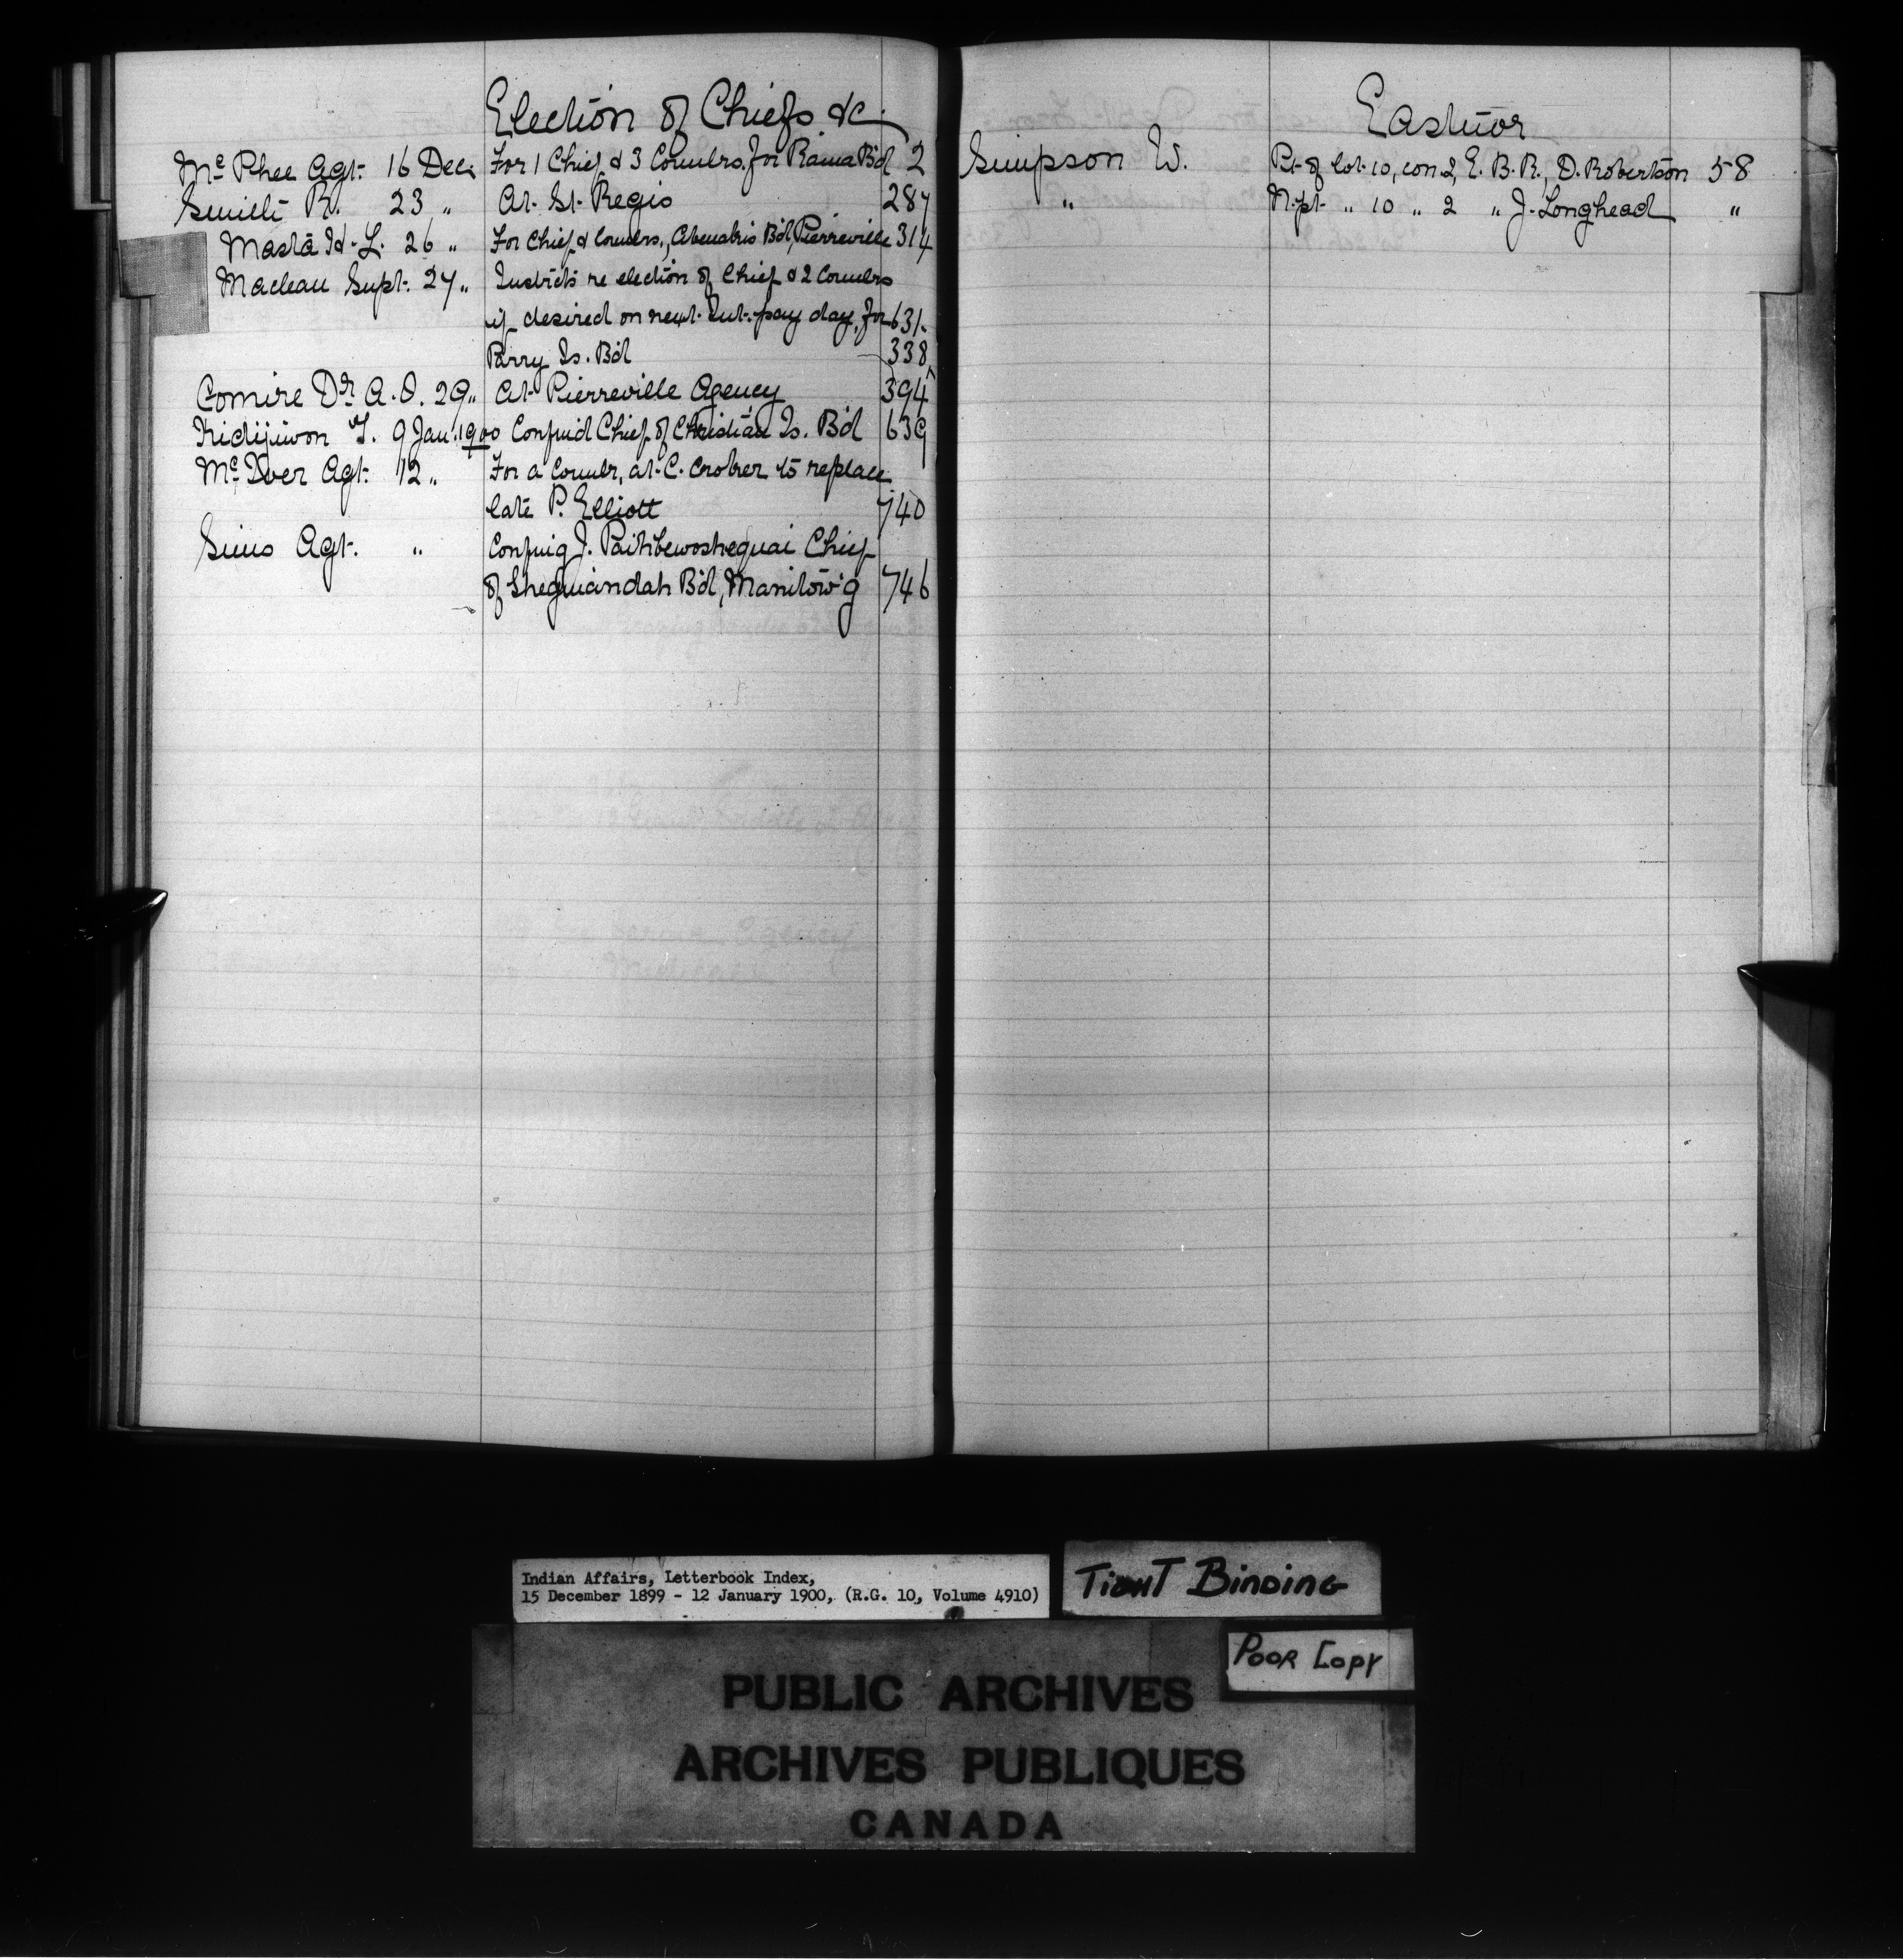 Election of Chiefs &c
Mc Phee Agt. 16 Dec. For 1 Chief & 3 Counlrs. for Rama B'd 2
Smith R. 23 " At St. Regis 287
Masta H. L. 26 " For Chief & Counlrs., Abenakis B'd, Pierreville 314
Maclean Supt. 27 " Instrcts re election of Chief & 2 Counlrs
if desired on next Int. pay day, for 631.
Parry Is. B'd 338
Comire Dr A. O. 29 " At Pierreville Agency 394
Kidijiwon T. 9 Jan. 1900 Confmd Chief of Christian Is. B'd 639
Mc Iver Agt. 12 " For a Counlr, at C. Croker to replace
late P. Elliott 740
Sims Agt. " Confmig J. Paihbewoshequai Chief
of Sheguiandah B'd, Manitow'g 746
Eastnor
Simpson W. Pt of lot 10, con 2, E. B. R., D. Robertson 58
" N. pt. " 10 " 2 " J. Longhead "
Indian Affairs, Letterbook Index,
15 December 1899 - 12 January 1900, (R.G. 10, Volume 4910)
TIGHT BINDING
POOR COPY
PUBLIC ARCHIVES
ARCHIVES PUBLIQUES
CANADA